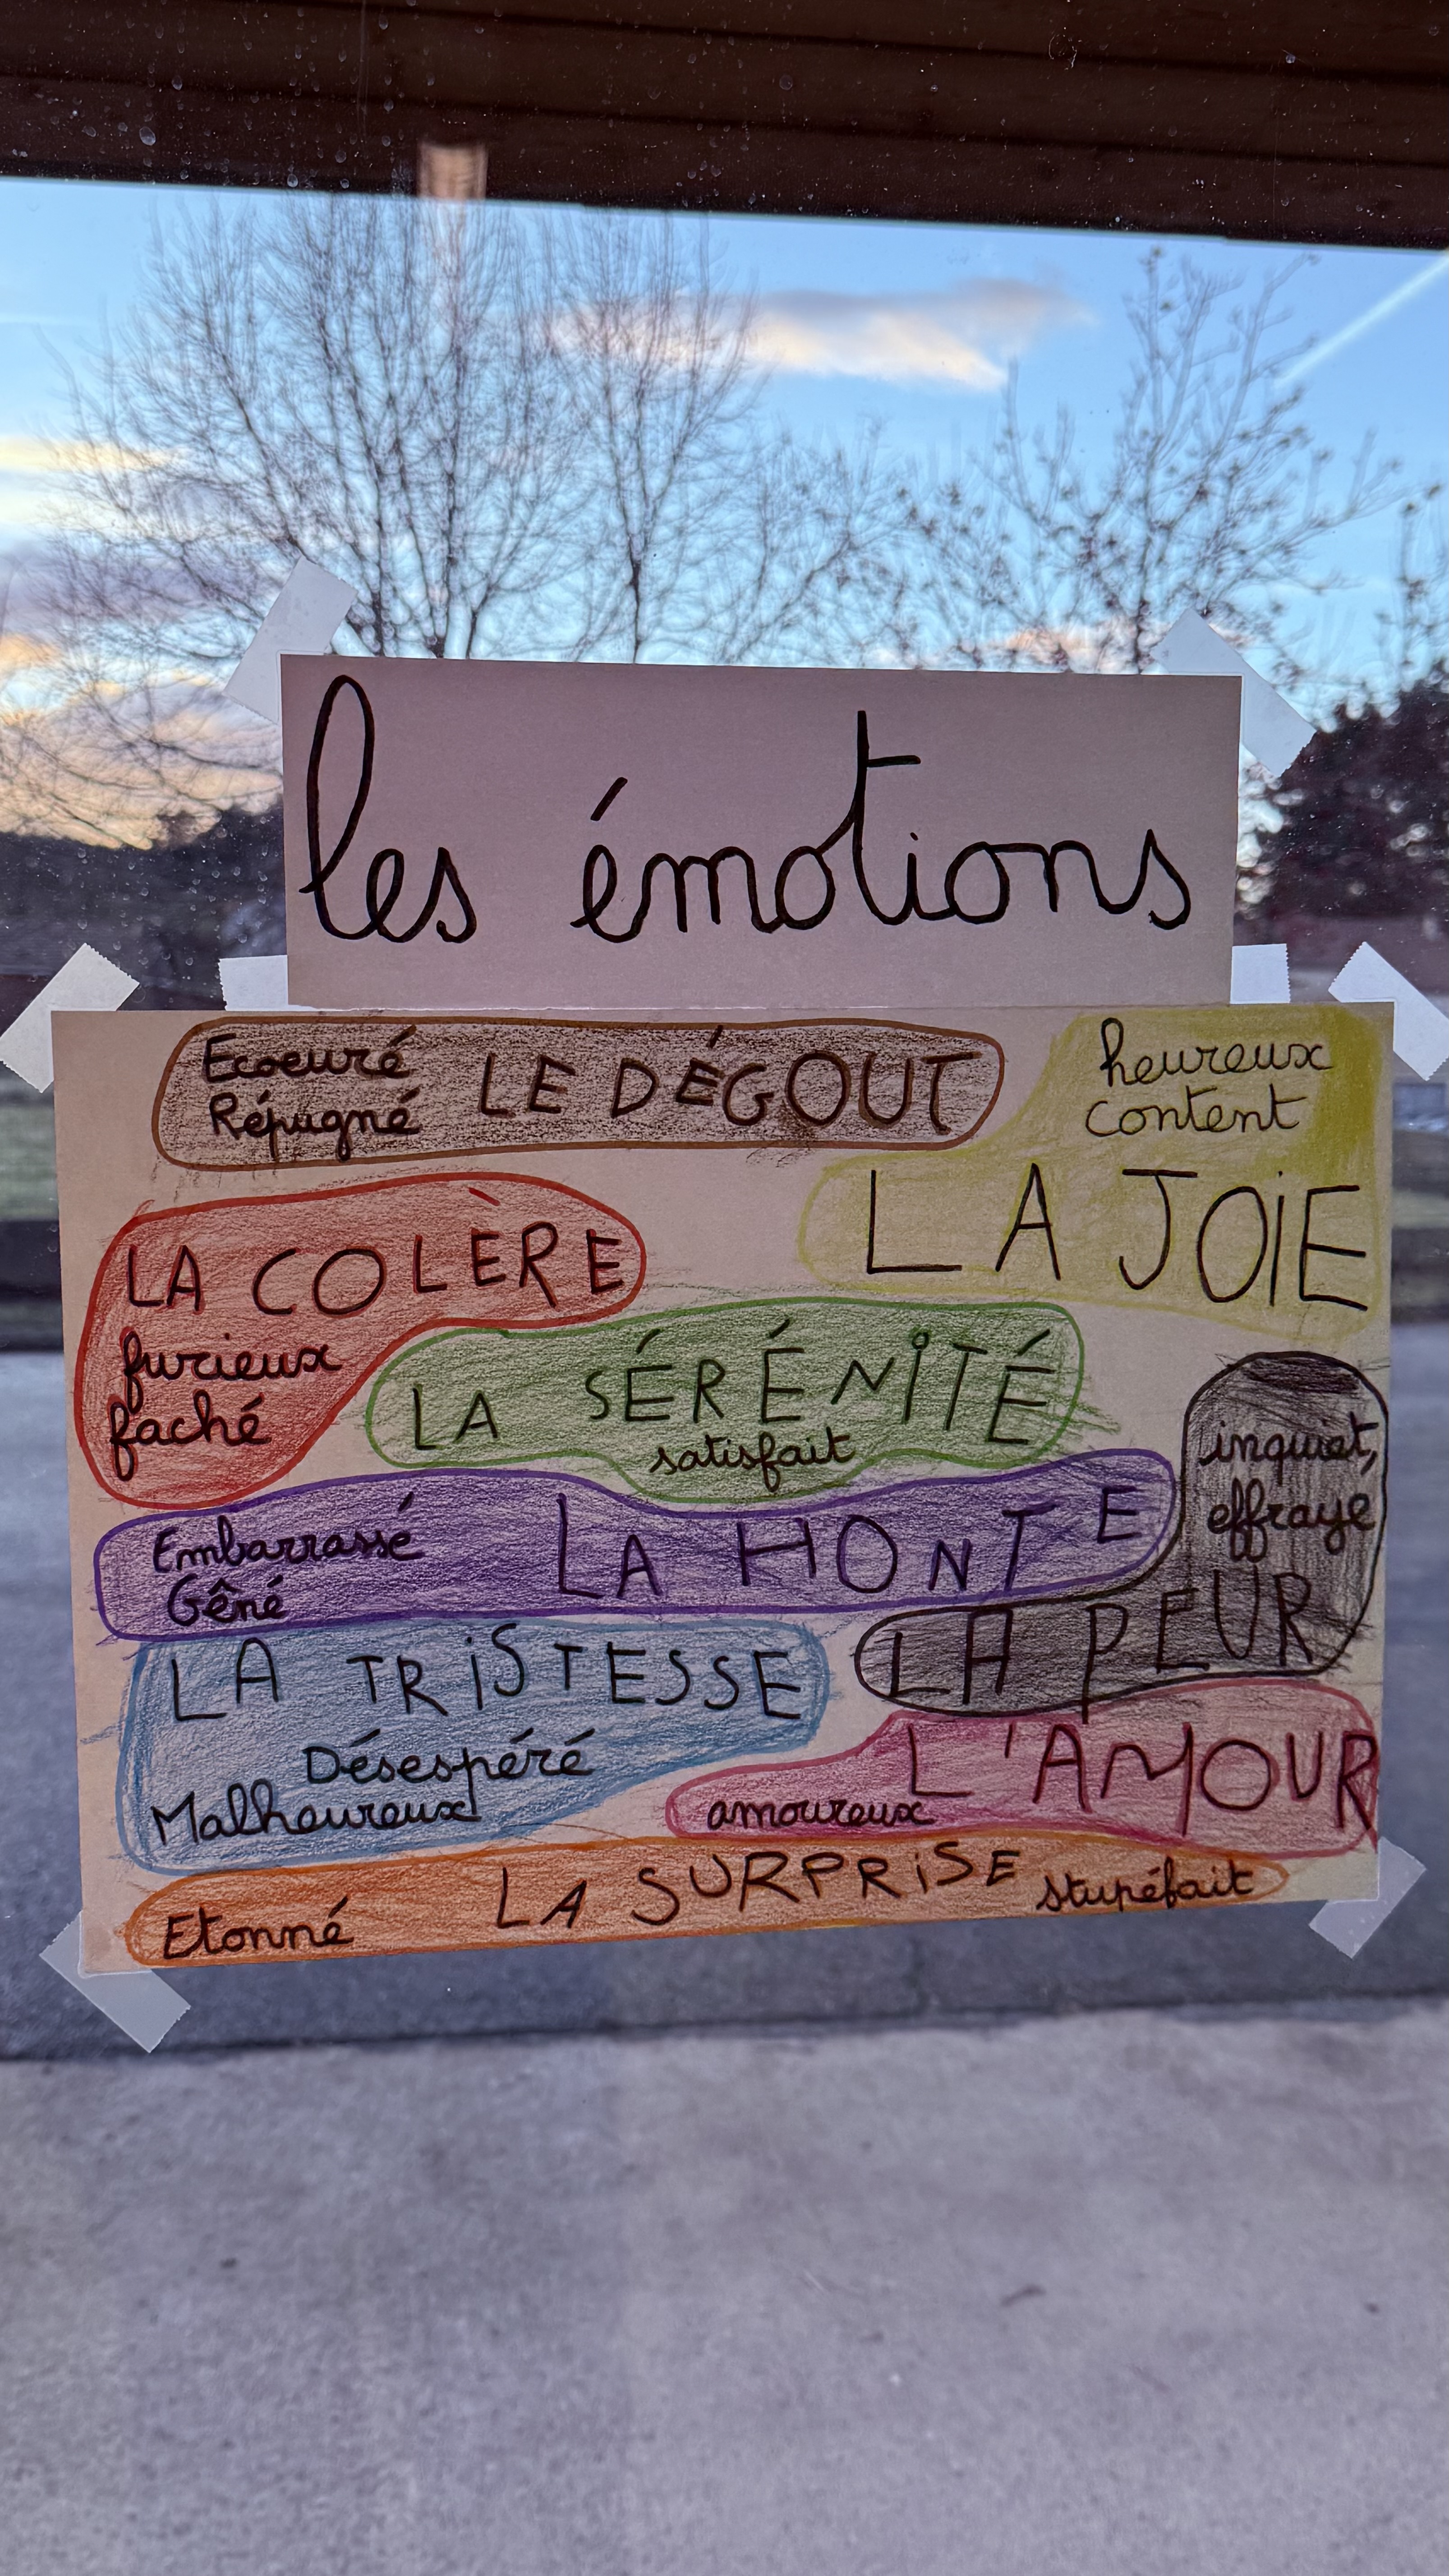 les émotions
Ecoeuré
Répugné
LE DÉGOUT
heureux
content
LA JOIE
LA COLÈRE
furieux
faché
LA SÉRÉNITÉ
satisfait
inquiet,
effraye
LA PEUR
Embarrassé
Gêné
LA HONTE
LA TRISTESSE
Désespéré
Malheureux
L'AMOUR
amoureux
LA SURPRISE
Etonné
stupéfait